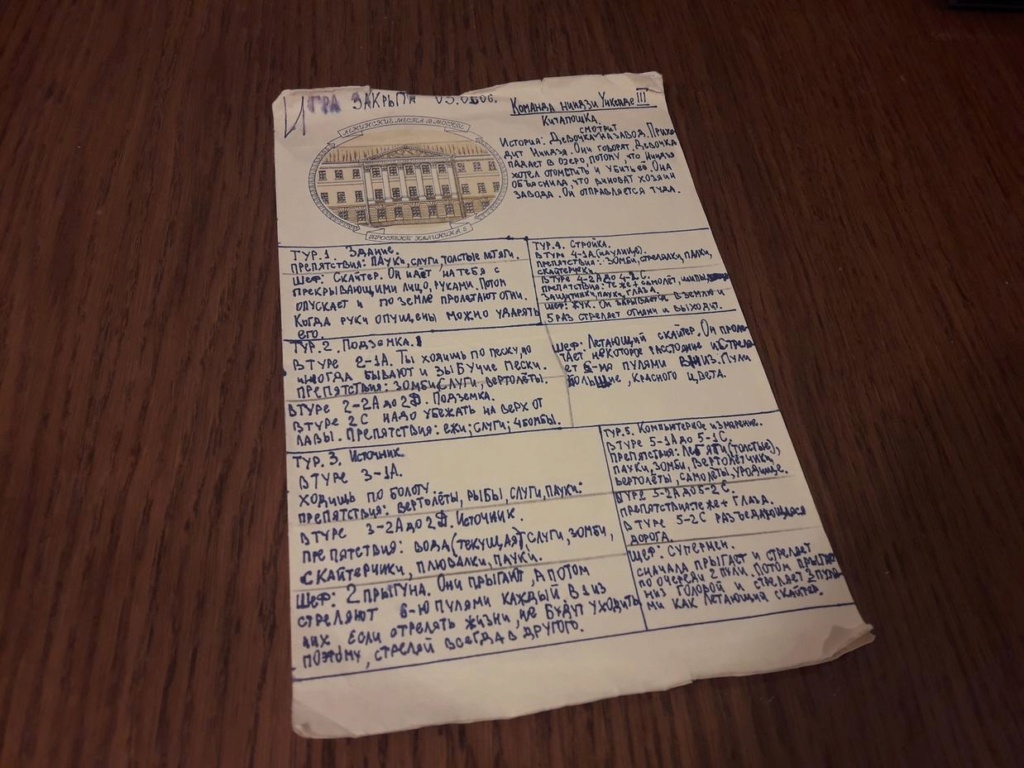 ИГРА ЗАКРЫТА 05.0606.
КОМАНДА НИНДЗИ УИКЭНДЕ III
КИТАПОШКА
СМОТРИТ
ИСТОРИЯ: ДЕВОЧКА НА ЗАВОД. ПРИХО-
ДИТ НИНДЗЯ. ОНИ ГОВОРЯТ. ДЕВОЧКА
ПАДАЕТ В ОЗЕРО, ПОТОМУ, ЧТО НИНДЗЯ
ХОТЕЛ ОТОМСТИТЬ И УБИТЬ ЕЁ. ОНА
ОБЪЯСНИЛА, ЧТО ВИНОВАТ ХОЗЯИН
ЗАВОДА. ОН ОТПРАВЛЯЕТСЯ ТУДА.
ТУР.1. ЗДАНИЕ.
ПРЕПЯТСТВИЯ: ПАУКИ, СЛУГИ, ТОЛСТЫЕ ЛЯГЯГИ.
ШЕФ: СКАЙТЕР. ОН ИДЁТ НА ТЕБЯ С
ПРЕКРЫВАЮЩИМИ ЛИЦО, РУКАМИ. ПОТОМ
ОПУСКАЕТ И ПО ЗЕМЛЕ ПРОЛЕТАЮТ ОГНИ.
КОГДА РУКИ ОПУЩЕНЫ МОЖНО УДАРЯТЬ
ЕГО.
ТУР.2. ПОДЗЕМКА.
В ТУРЕ 2-1А. ТЫ ХОДИШЬ ПО ПЕСКУ, НО
ИНОГДА БЫВАЮТ И ЗЫБУЧИЕ ПЕСКИ.
ПРЕПЯТСТВИЯ: ЗОМБИ, СЛУГИ, ВЕРТОЛЁТЫ.
В ТУРЕ 2-2А ДО 2D. ПОДЗЕМКА.
В ТУРЕ 2С НАДО УБЕЖАТЬ НА ВЕРХ ОТ
ЛАВЫ. ПРЕПЯТСТВИЯ: ЕЖИ; СЛУГИ; 4 БОМБЫ.
ТУР.3. ИСТОЧНИК
В ТУРЕ 3-1А.
ХОДИШЬ ПО БОЛОТУ.
ПРЕПЯТСТВИЯ: ВЕРТОЛЁТЫ, РЫБЫ, СЛУГИ, ПАУКИ.
В ТУРЕ 3-2А ДО 2D. ИСТОЧНИК.
ПРЕПЯТСТВИЯ: ВОДА (ТЕКУЩАЯ), СЛУГИ, ЗОМБИ,
СКАЙТЕРЧИКИ, ПЛЮВАЛКИ, ПАУКИ.
ШЕФ: 2 ПРЫГУНА. ОНИ ПРЫГАЮТ, А ПОТОМ
СТРЕЛЯЮТ 6-Ю ПУЛЯМИ КАЖДЫЙ В 1 ИЗ
НИХ. ЕСЛИ ОТРЕЛЯТЬ ЖИЗНИ, НЕ БУДУТ УХОДИТЬ
ПОЭТОМУ, СТРЕЛЯЙ ВСЕГДА В ДРУГОГО.
ТУР.4. СТРОЙКА.
В ТУРЕ 4-1А (НА УЛИЦЕ).
ПРЕПЯТСТВИЯ: ЗОМБИ, СТРЕЛЯЛКИ, ПАЛКИ,
СКАЙТЕРЧИКИ
В ТУРЕ 4-2А ДО 4-2С.
ПРЕПЯТСТВИЯ: ТЕ ЖЕ + САМОЛЁТ, ШИПЫ,
ЗАЩИТНИК, ПАУК, ГЛАЗА.
ШЕФ: ЖУК. ОН ЗАРЫВАЕТ В ЗЕМЛЮ И
5 РАЗ СТРЕЛЯЕТ ОГНЯМИ И ВЫХОДЫ.
ШЕФ: ЛЕТАЮЩИЙ СКАЙТЕР. ОН ПРОЛЕ-
ТАЕТ НЕКОТОРОЕ РАССТОЯНИЕ И СТРЕЛЯ-
ЕТ 6-МО ПУЛЯМИ ВНИЗ. ПУЛИ
БОЛЬШИЕ, КРАСНОГО ЦВЕТА.
ТУР.5. КОМПЬЮТЕРНОЕ ИЗМЕРЕНИЕ.
В ТУРЕ 5-1А ДО 5-1С.
ПРЕПЯТСТВИЯ: (ТОЛСТЫЕ),
ПАУКИ, ЗОМБИ, ВЕРТОЛЁТЧИКИ,
ВЕРТОЛЁТЫ, САМОЛЁТЫ, УРОДИЩЕ.
В ТУРЕ 5-2А ДО 5-2С.
ПРЕПЯТСТВИЯ ТЕ ЖЕ + ГЛАЗА.
В ТУРЕ 5-2С РАЗЪЕДАЮЩАЯСЯ
ДОРОГА.
ШЕФ: СУПЕРМЕН.
СНАЧАЛА ПРЫГАЕТ И СТРЕЛЯЕТ
ПО ОЧЕРЕДИ 2 ПУЛИ. ПОТОМ ПРЫГАЕТ
НИЗ ГОЛОВОЙ И СТРЕЛЯЕТ 3 ПУЛЯ-
МИ КАК ЛЕТАЮЩИЙ СКАЙТЕР.